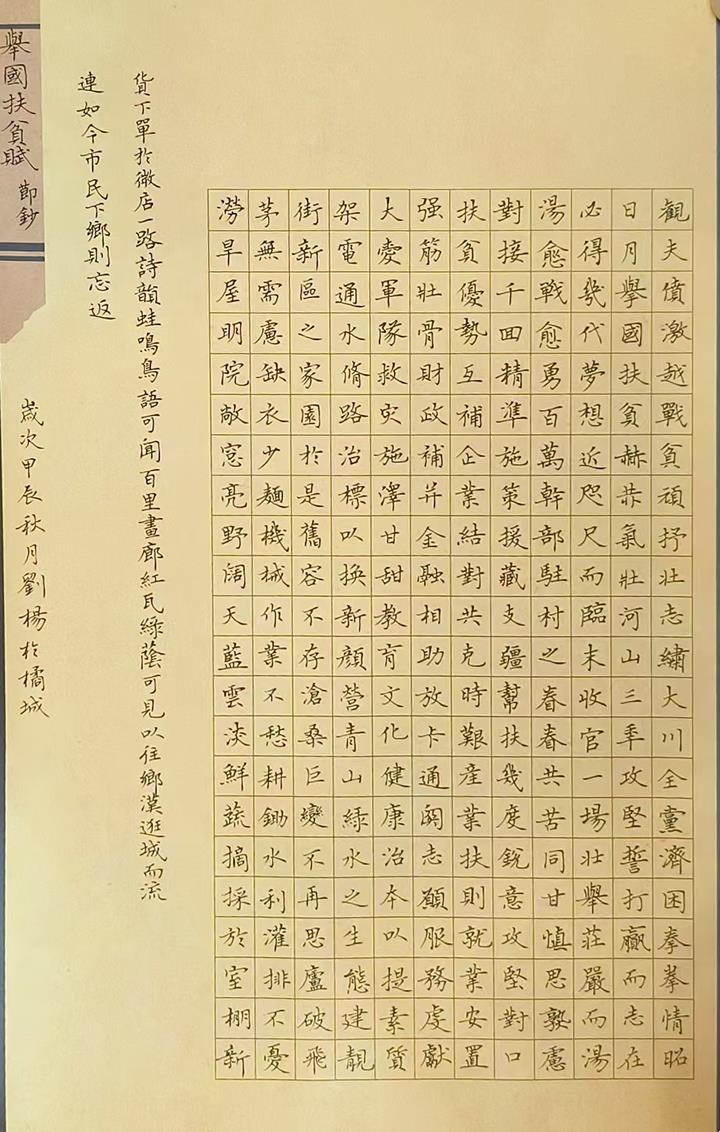 觀夫憤激越戰貧頑抒壯志繡大川全黨濟困拳拳情昭
日月舉國扶貧赫赫氣壯河山三年攻堅誓打贏而志在
必得幾代夢想近咫尺而臨末收官一場壯舉莊嚴而湯
湯愈戰愈勇百萬幹部駐村之春春共苦同甘慎思孰慮
對接千回精準施策援藏支疆幫扶幾度銳意攻堅對口
扶貧優勢互補企業結對共克時艱產業扶則就業安置
强筋壯骨財政補并金融相助放卡通関志願服務虔獻
大愛軍隊救灾施澤甘甜教育文化健康治本以提素質
架電通水脩路治標以換新顔營青山綠水之生態建靚
街新區之家園於是舊容不存滄桑巨變不再思廬破飛
茅無需慮缺衣少麵機械作業不愁耕鋤水利灌排不憂
澇旱屋明院敞窓亮野闊天藍雲淡鮮蔬摘採於室棚新
貨下單於微店一路詩韻蛙鳴鳥語可聞百里畫廊紅瓦綠蔭可見以往鄉漢逛城而流
連如今市民下鄉則忘返
歲次甲辰秋月劉楊於橘城
舉國扶貧賦 節鈔